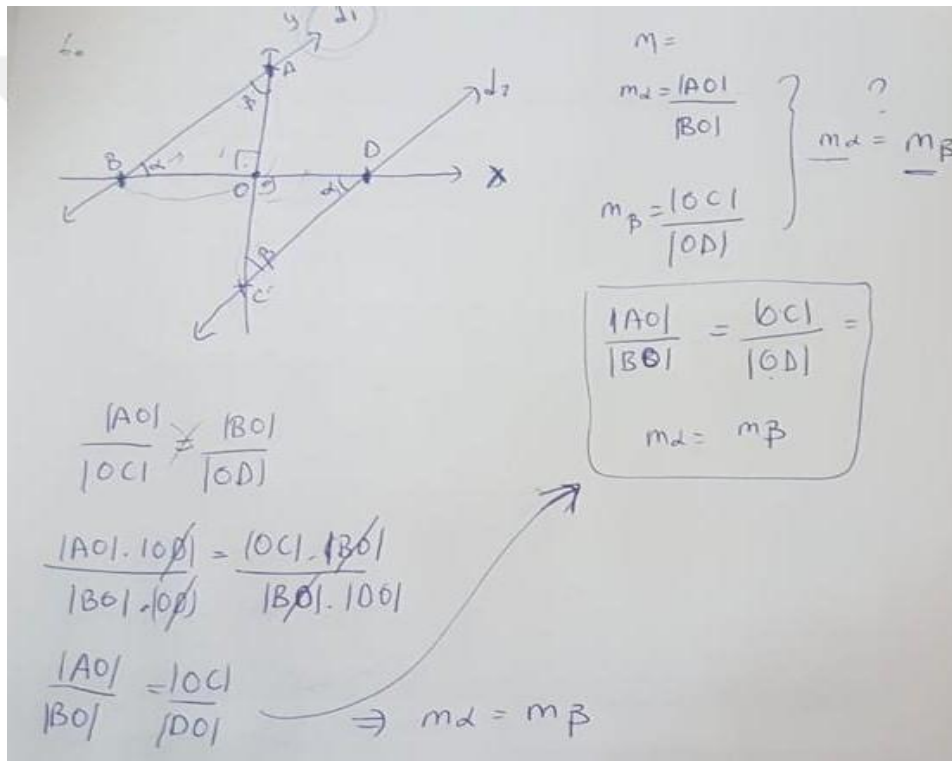 y d1
A
β
d2
B α D
O α x
β
C
m =
mα = |AO| / |BO|
mβ = |OC| / |OD|
?
mα = mβ
|AO| / |BO| = |OC| / |OD| =
mα = mβ
|AO| / |OC| = |BO| / |OD|
|AO|.|OD| / |BO|.|OD| = |OC|.|BO| / |BO|.|OD|
|AO| / |BO| = |OC| / |DO| ⇒ mα = mβ